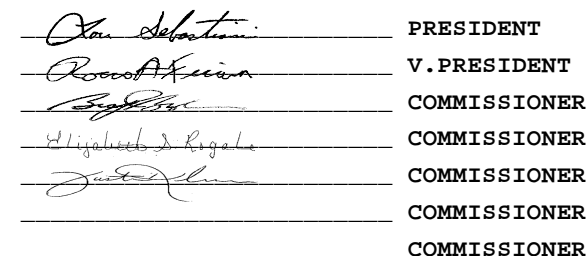 Lou Sebastiani PRESIDENT
V.PRESIDENT
COMMISSIONER
Elizabeth S. Rogale COMMISSIONER
COMMISSIONER
COMMISSIONER
COMMISSIONER